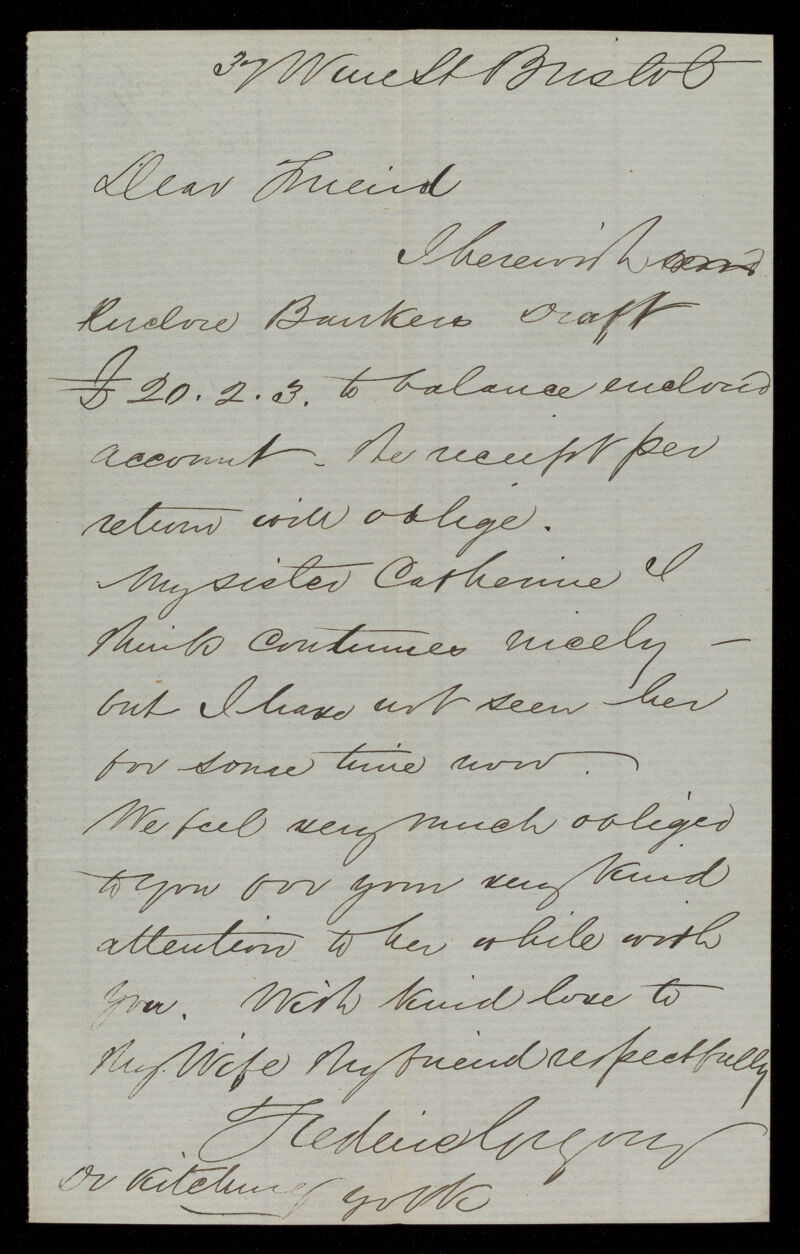 37 Wine St Bristol
Dear Friend
I herewith send
Enclose Bankers Draft
£20.2.3. to balance enclosed
account - the receipt per
return will oblige.
My sister Catherine I
think continues nicely -
but I have not seen her
for some time now.
We feel very much obliged
to you for your very kind
attention to her while with
you. With kind love to
thy Wife thy friend respectfully
Frederic
Dr Kitching York